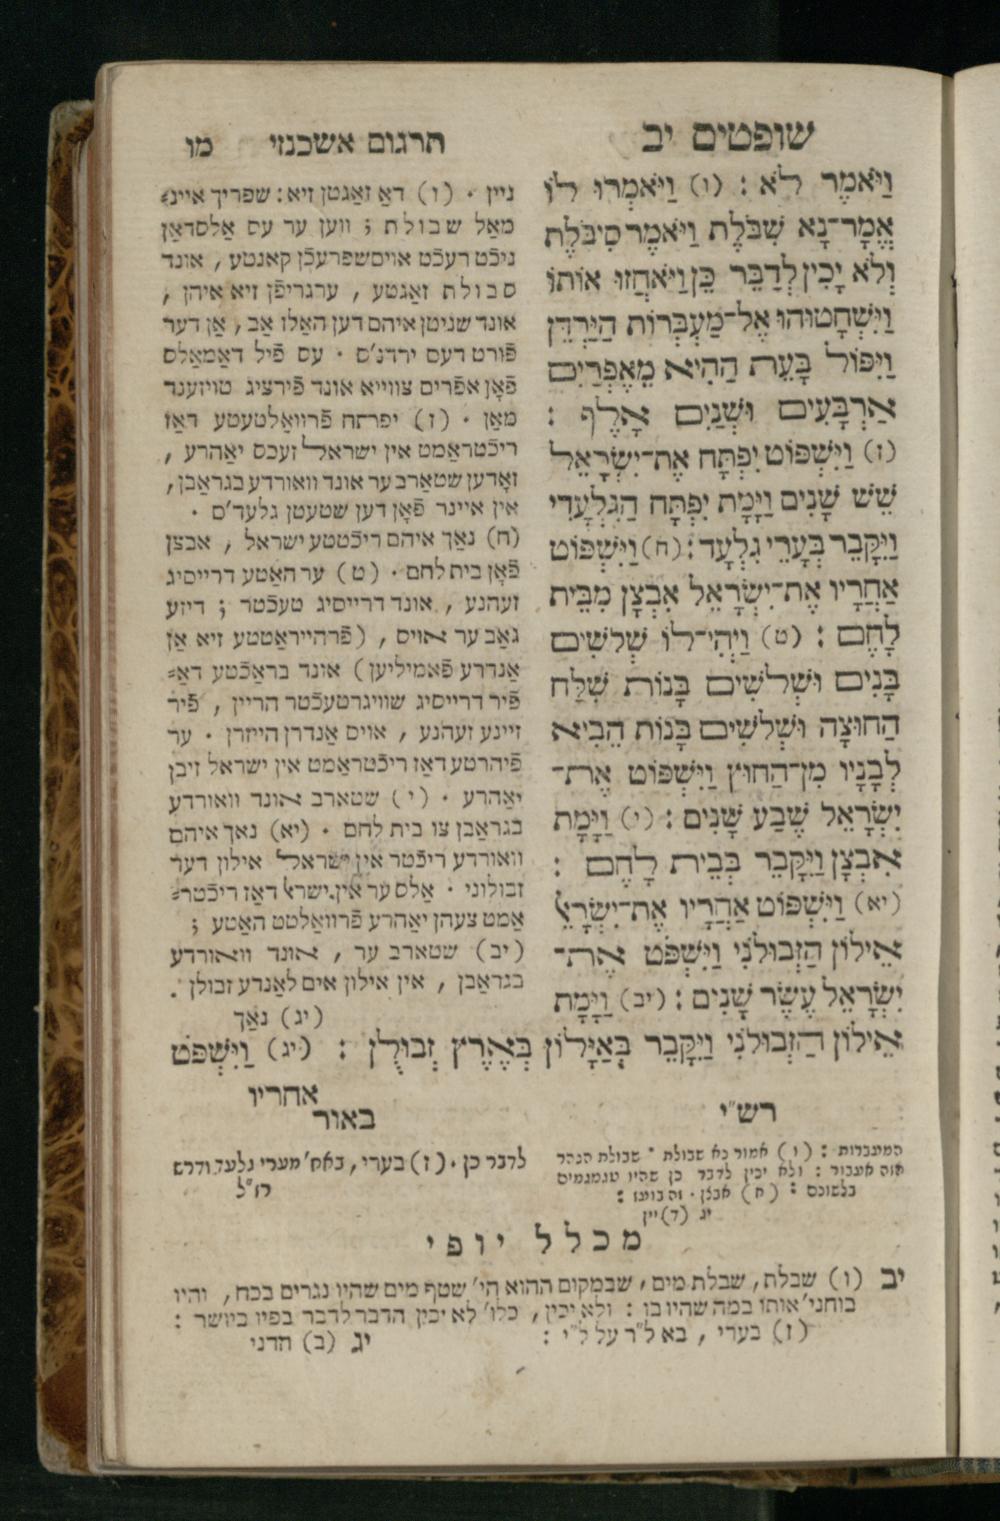 שופטים יב
תרגום אשכנזי מו
וַיֹּאמֶר לֹא : (ו) וַיֹּאמְרוּ לוֹ
אֱמָר־נָא שִׁבֹּלֶת וַיֹּאמֶר סִבֹּלֶת
וְלֹא יָכִין לְדַבֵּר כֵּן וַיֹּאחֲזוּ אוֹתוֹ
וַיִּשְׁחָטוּהוּ אֶל־מַעְבְּרוֹת הַיַּרְדֵּן
וַיִּפּוֹל בָּעֵת הַהִיא מֵאֶפְרַיִם
אַרְבָּעִים וּשְׁנַיִם אָלֶף :
(ז) וַיִּשְׁפּוֹט יִפְתָּח אֶת־יִשְׂרָאֵל
שֵׁשׁ שָׁנִים וַיָּמָת יִפְתָּח הַגִּלְעָדִי
וַיִּקָּבֵר בְּעָרֵי גִלְעָד : (ח) וַיִּשְׁפּוֹט
אַחֲרָיו אֶת־יִשְׂרָאֵל אִבְצָן מִבֵּית
לָחֶם : (ט) וַיְהִי־לוֹ שְׁלֹשִׁים
בָּנִים וּשְׁלֹשִׁים בָּנוֹת שִׁלַּח
הַחוּצָה וּשְׁלֹשִׁים בָּנוֹת הֵבִיא
לְבָנָיו מִן־הַחוּץ וַיִּשְׁפּוֹט אֶת־
יִשְׂרָאֵל שֶׁבַע שָׁנִים : (י) וַיָּמָת
אִבְצָן וַיִּקָּבֵר בְּבֵית לָחֶם :
(יא) וַיִּשְׁפּוֹט אַחֲרָיו אֶת־יִשְׂרָאֵל
אֵילוֹן הַזְּבוּלֹנִי וַיִּשְׁפֹּט אֶת־
יִשְׂרָאֵל עֶשֶׂר שָׁנִים : (יב) וַיָּמָת
אֵילוֹן הַזְּבוּלֹנִי וַיִּקָּבֵר בְּאַיָּלוֹן בְּאֶרֶץ זְבוּלֻן : (יג) וַיִּשְׁפֹּט
אחריו
ניין . (ו) דאַ זאַגטן זיא : שפריך איינ=
מאַל שבולת ; ווען ער עס אַלסדאַן
ניכֿט רעכֿט אויסשפרעכֿן קאנטע , אונד
סבולת זאַגטע , ערגריפֿן זיא איהן ,
אונד שניטן איהם דען האַלז אַב , אַן דער
פֿורט דעס ירדנ'ס . עס פֿיל דאַמאַלס
פֿאָן אפרים צווייא אונד פֿירציג טויזענד
מאַן . (ז) יפתח פֿרוואַלטעטע דאַז
ריכֿטראַמט אין ישראל זעכס יאַהרע ,
זאָדען שטאַרב ער אונד וואורדע בגראַבן ,
אין איינר פֿאָן דען שטעטן גלעד'ס .
(ח) נאָך איהם ריכֿטטע ישראל , אבצן
פֿאָן בית לחם . (ט) ער האַטע דרייסיג
זעהנע , אונד דרייסיג טעכֿטר ; דיזע
גאַב ער אויס , (פֿרהייראַטטע זיא אַן
אַנדרע פֿאמיליען) אונד בראַכֿטע דאַ=
פֿיר דרייסיג שוויגרטעכֿטר הריין , פֿיר
זיינע זעהנע , אויס אַנדרן הייזרן . ער
פֿיהרטע דאַז ריכֿטראַמט אין ישראל זיבן
יאַהרע . (י) שטארב אונד וואורדע
בגראַבן צו בית לחם . (יא) נאך איהם
וואורדע ריכֿטר אין ישראל אילון דער
זבולוני . אַלס ער אין ישראל דאַז ריכֿטר=
אַמט צעהן יאַהרע פֿרוואַלטט האַטע ;
(יב) שטארב ער , אונד וואורדע
בגראַבן , אין אילון אים לאַנדע זבולן .
(יג) נאַך
רש"י
המעברות : (ו) אמור נא שבולת . שבולת הנהר
אזה אעבור : ולא יכין לדבר כן שהיו מגמגמים
בלשונם : (ח) אבצן . זה בועז :
יג (ד) יין
באור
לדבר כן . (ז) בערי , באח' מערי גלעד ודרש
רז"ל
מכלל יופי
יב (ו) שבלת, שבלת מים, שבמקום ההוא הי' שטף מים שהיו נגרים בכח, והיו
בוחני' אותו במה שהיו בו : ולא יכין , כלו' לא יכין הדבר לדבר בפיו ביושר :
(ז) בערי , בא ל"ר על ל"י :
יג (ב) חדני